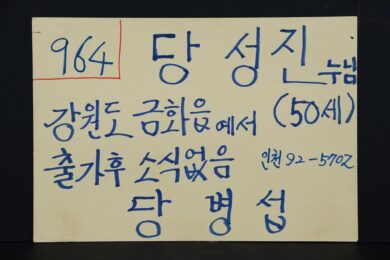 964
당 성진 누님
강원도 금화읍에서 (50세)
출가후 소식없음 인천 92-5702
당 병 섭